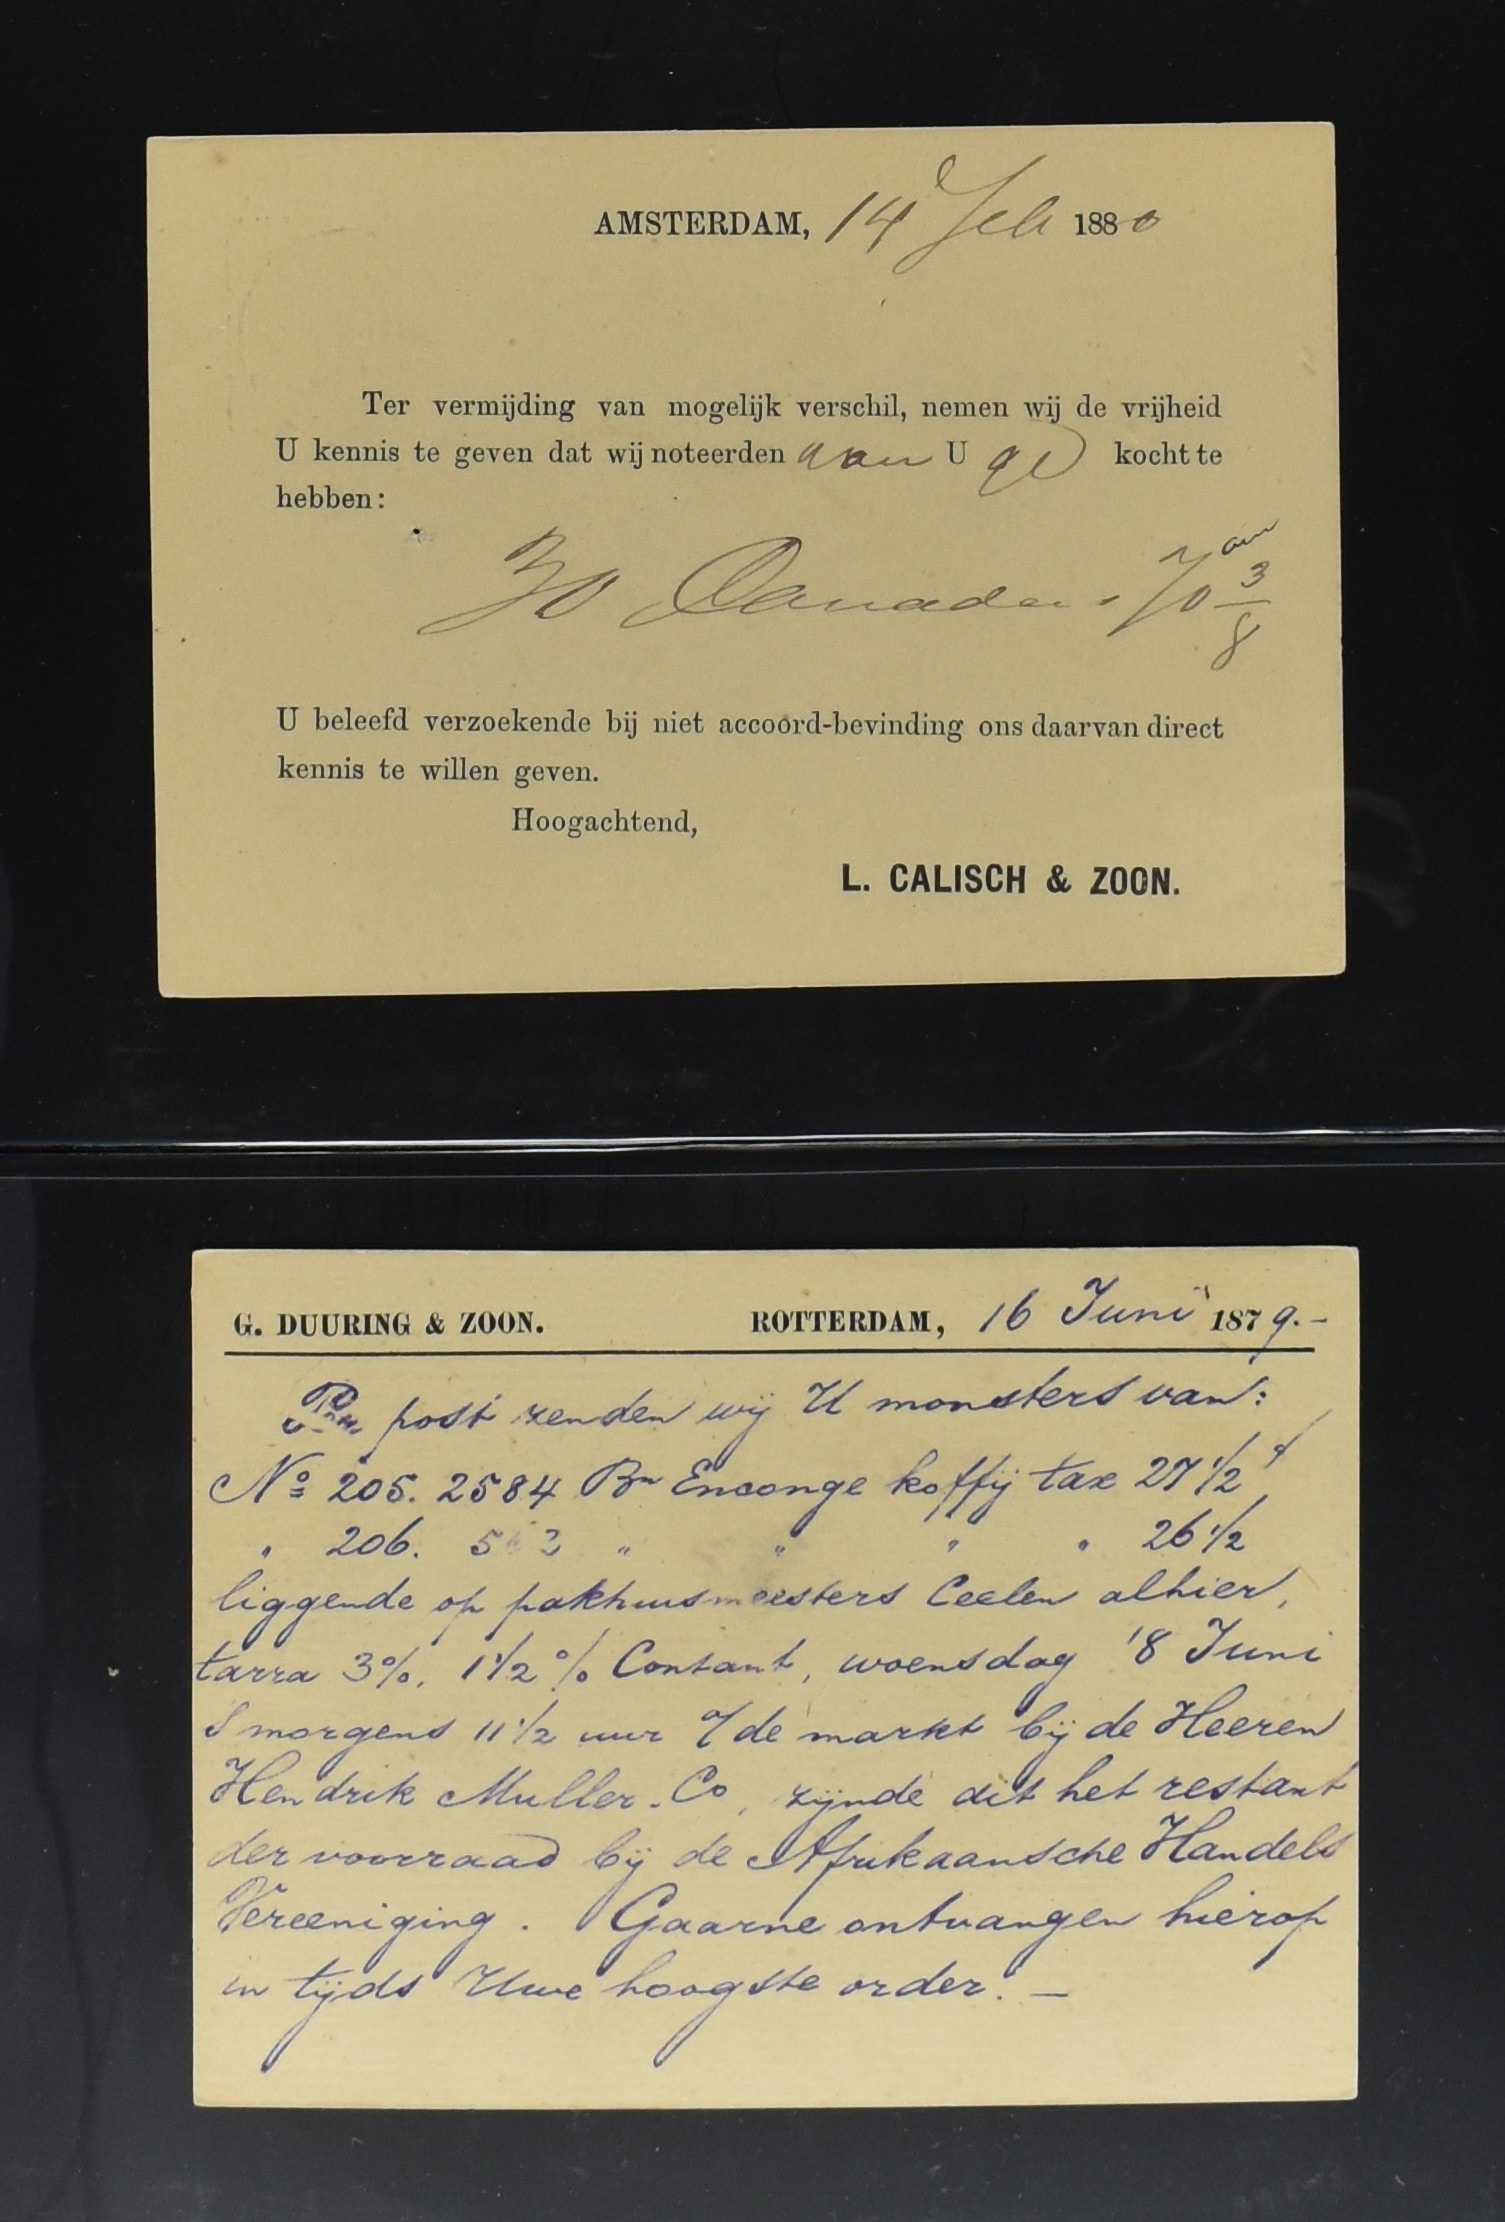 AMSTERDAM, 14 Feb 1880
Ter vermijding van mogelijk verschil, nemen wij de vrijheid
U kennis te geven dat wij noteerden aan U ge kocht te
hebben:
30 Canada 70 3/8
U beleefd verzoekende bij niet accoord-bevinding ons daarvan direct
kennis te willen geven.
Hoogachtend,
L. CALISCH & ZOON.
G. DUURING & ZOON. ROTTERDAM, 16 Juni 1879.-
post zenden wij U monsters van:
No 205. 2584 Bn Enconge koffij tax 27 1/2
" 206. " " " " 26 1/2
liggende op pakhuismeesters Ceelen alhier,
tarra 3%, 1 1/2 % Contant, woensdag 18 Juni
s morgens 11 1/2 uur o/de markt bij de Heeren
Hendrik Muller. Co, zijnde dit het restant
der voorraad bij de Afrikaansche Handels
Vereeniging. Gaarne ontvangen hierop
in tijds Uwe hoogste order. —